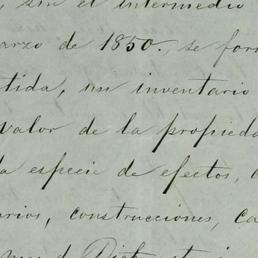 , sin el intermedio
arzo de 1850., se for
tida, un inventario
valor de la propieda
a especie de efectos,
arios, construcciones, ca